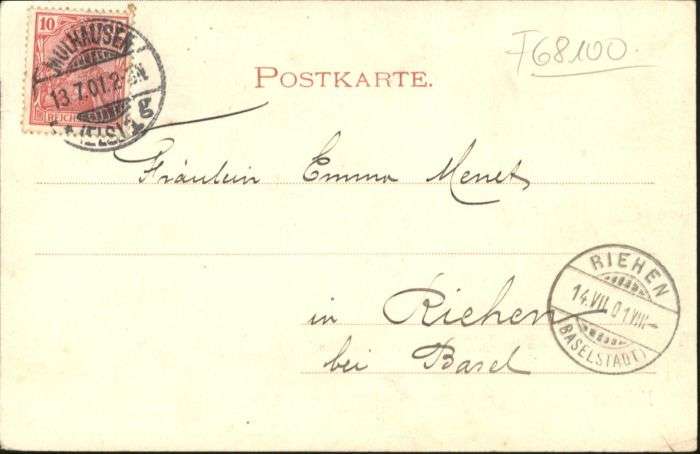 10
REICH
MÜLHAUSEN
13.7.01.2-3N
(ELS)
g
F68100.
POSTKARTE.
Fräulein Emma Menet
in Riehen
bei Basel
RIEHEN
14.VII.01.VIII–
(BASELSTADT)